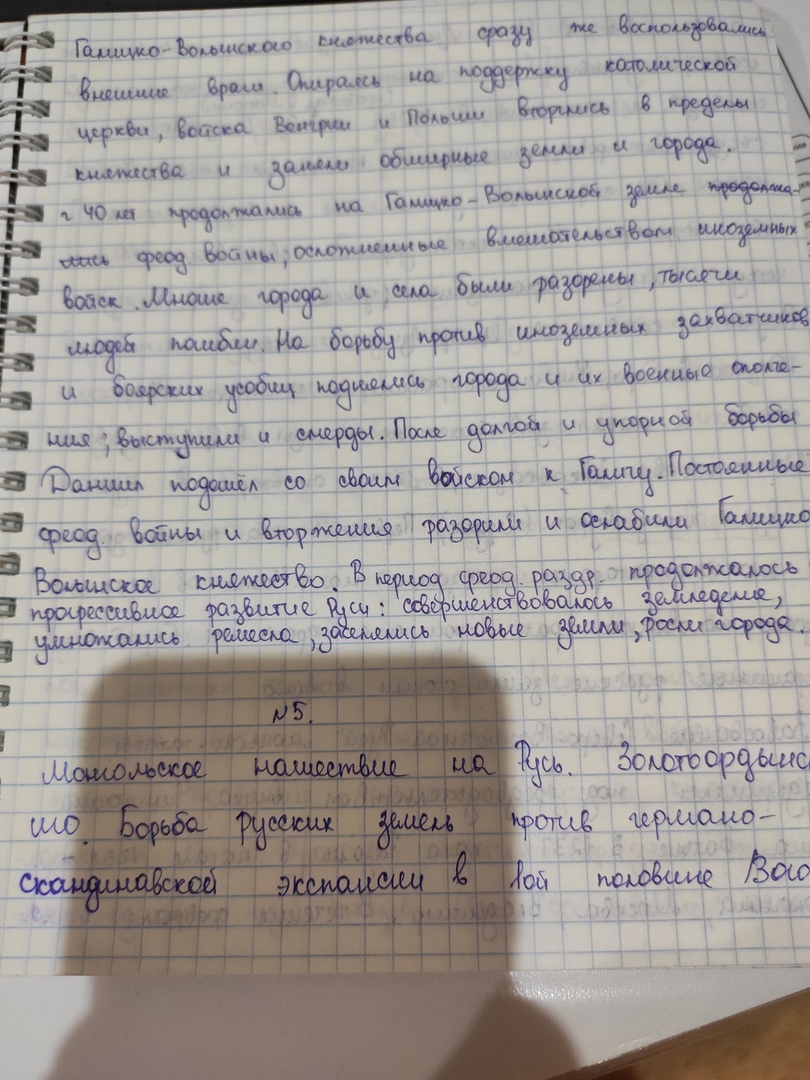 Галицко-Волынского княжества сразу же воспользовались
внешние враги. Опираясь на поддержку католической
церкви, войска Венгрии и Польши вторглись в пределы
княжества и заняли обширные земли и города.
40 лет продолжались на Галицко-Волынской земле продолжа-
лись феод. войны, осложненные вмешательством иноземных
войск. Многие города и села были разорены, тысячи
людей погибли. На борьбу против иноземных захватчиков
и боярских усобиц поднялись города и их военные ополче-
ния; выступили и смерды. После долгой и упорной борьбы
Даниил подошёл со своим войском к Галичу. Постоянные
феод. войны и вторжения разорили и ослабили Галицко
Волынское княжество. В период феод. раздр. продолжалось
прогрессивное развитие Руси: совершенствовалось земледелие,
умножались ремесла, заселялись новые земли, росли города.
№5.
Монгольское нашествие на Русь. Золотоордынс
иго. Борьба русских земель против германо-
скандинавской экспансии в 1ой половине